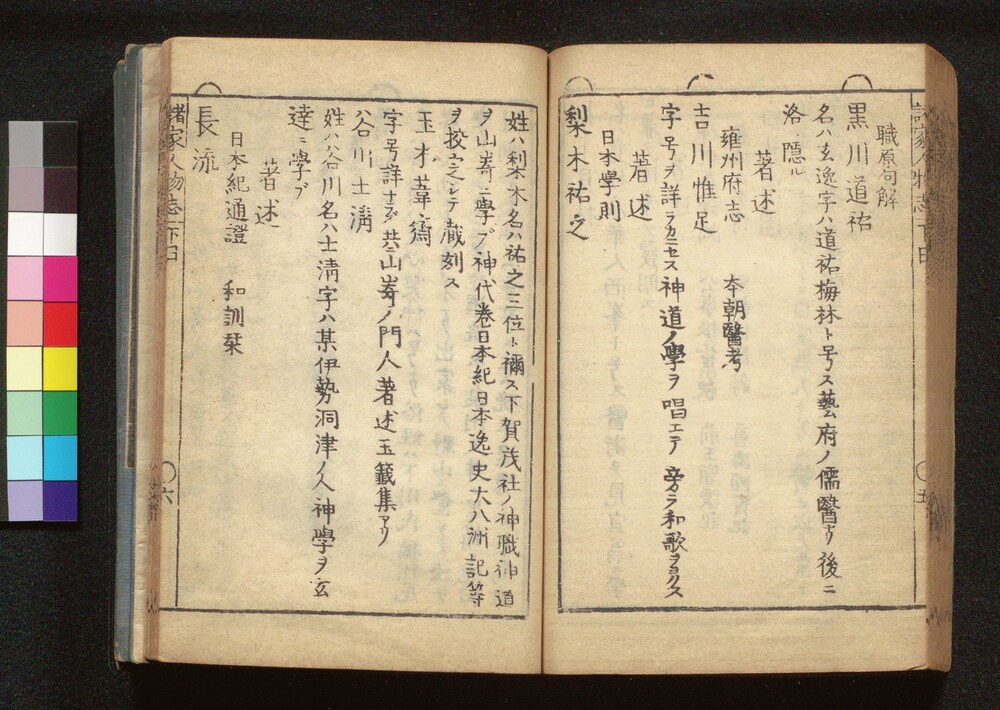 職原句解
黒川道祐
名ハ玄逸字ハ道祐梅林ト号ス藝府ノ儒醫ナリ後ニ
洛ニ隠ル
著述
雍州府志　本朝醫考
吉川惟足
字号ヲ詳ラカニセス神道ノ學ヲ唱エテ旁ラ和歌ヲヨクス
著述
日本學則
梨木祐之
姓ハ梨木名ハ祐之三位ト禰ス下賀茂社ノ神職神道
ヲ山嵜ニ學ブ神代卷日本紀日本逸史大八洲記等
ヲ挍定シテ蔵刻ス
玉木葦齋
字号詳ナラズ共ニ山嵜ノ門人著述玉籤集アリ
谷川士淸
姓ハ谷川名ハ士淸字ハ某伊勢洞津ノ人神學ヲ玄
達ニ學ブ
著述
日本紀通證　和訓栞
長流
諸家人物志
六